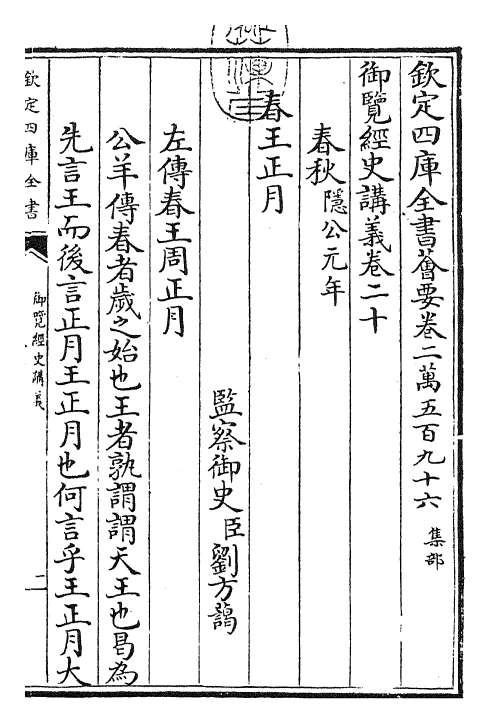 欽定四庫全書薈要卷二萬五百九十六 集部
御覽經史講義卷二十
春秋 隱公元年
春王正月
監察御史臣劉方藹
左傳春王周正月
公羊傳春者歲之始也王者孰謂謂天王也曷為
先言王而後言正月王正月也何言乎王正月大
欽定四庫全書
御覽經史講義
二